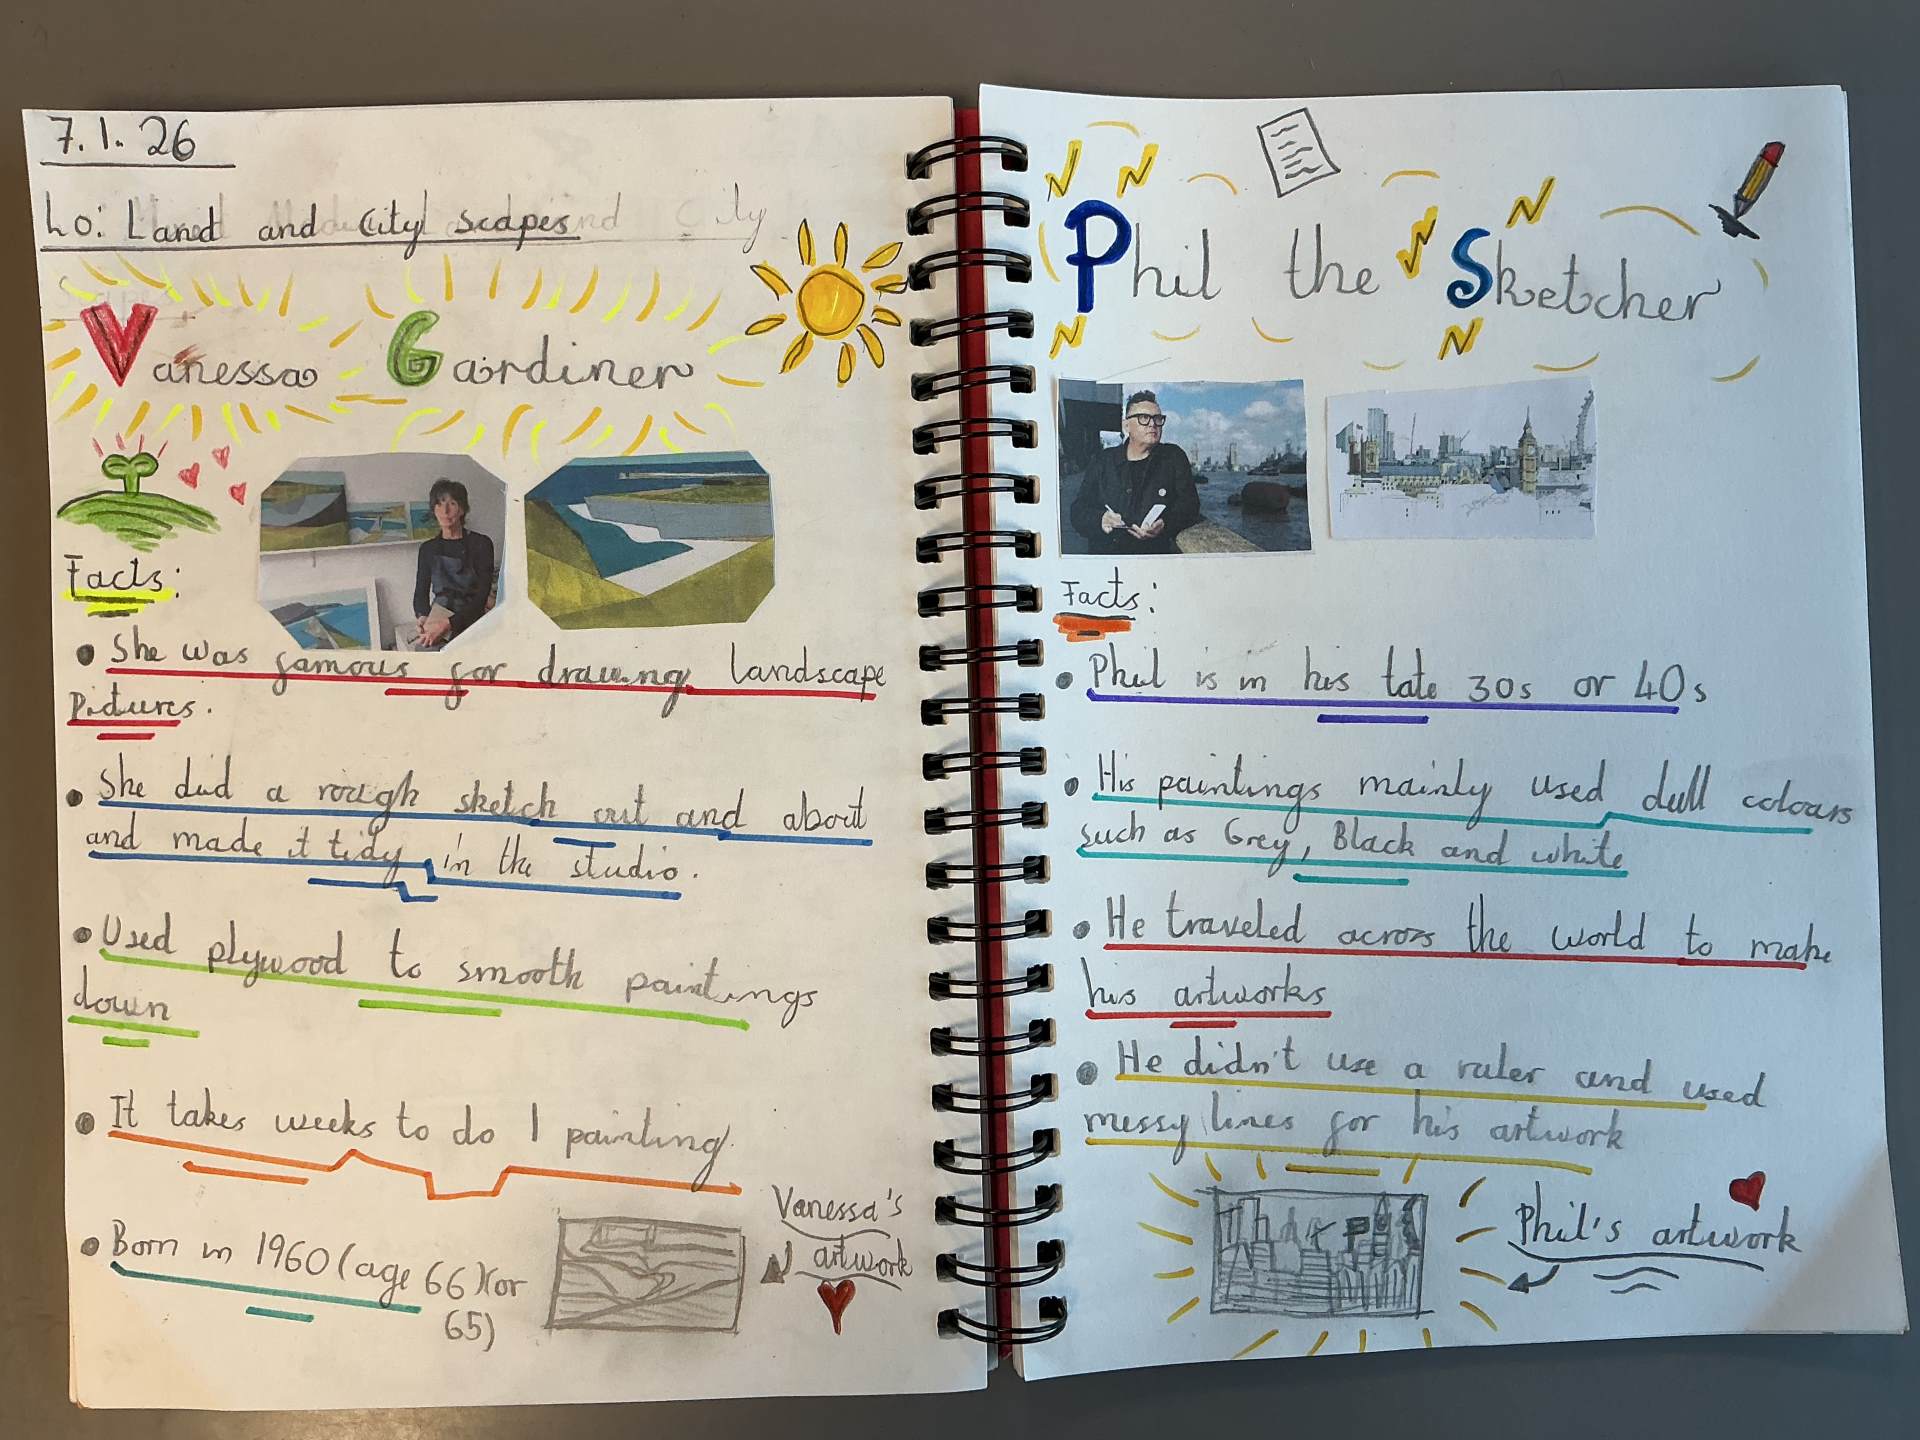 7.1.26
Lo: Land and City scapes
Vanessa Gardiner
Facts:
• She was famous for drawing landscape
Pictures.
• She did a rough sketch out and about
and made it tidy in the studio.
• Used plywood to smooth paintings
down
• It takes weeks to do 1 painting.
• Born in 1960 (age 66)(or
65)
Vanessa's
artwork
Phil the Sketcher
Facts:
• Phil is in his late 30s or 40s
• His paintings mainly used dull colours
such as Grey, Black and white
• He traveled across the world to make
his artworks
• He didn't use a ruler and used
messy lines for his artwork
Phil's artwork